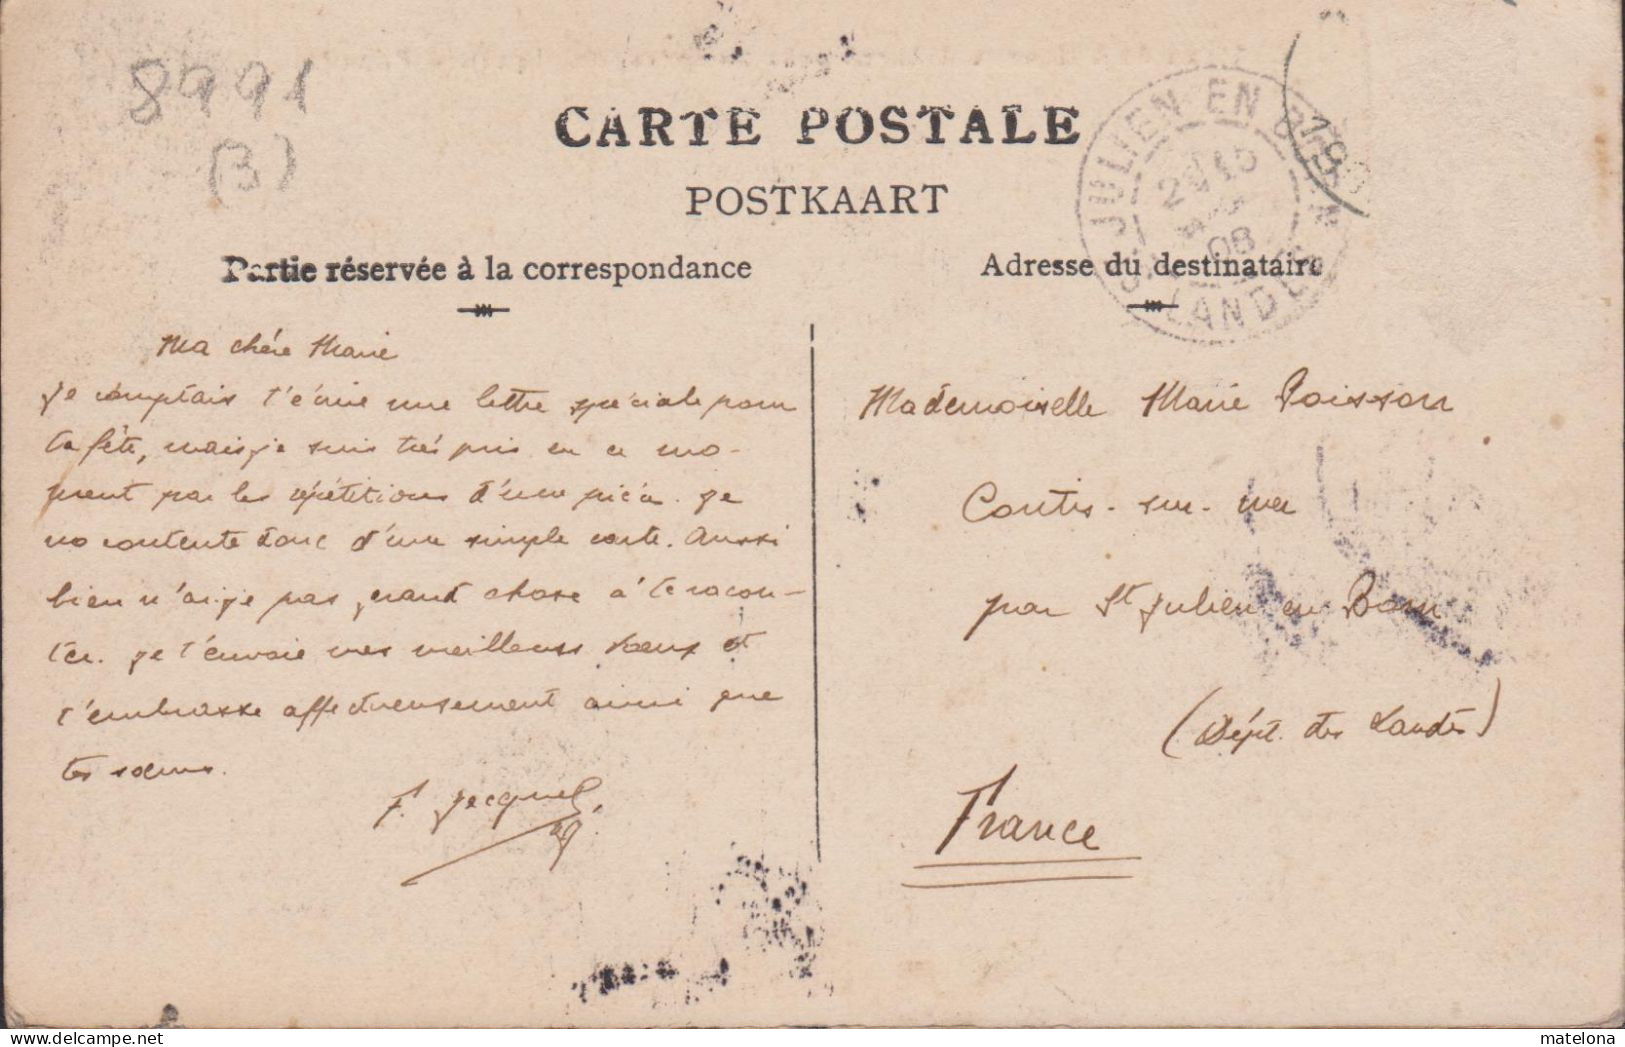 8991
(B)
CARTE POSTALE
POSTKAART
Partie réservée à la correspondance
Adresse du destinataire
JULIEN EN BORN
08
LANDES
190
Ma chère Marie
je comptais t'écrire une lettre spéciale pour
ta fête, mais je suis très pris en ce mo-
ment par les répétitions d'une pièce. je
me contente donc d'une simple carte. Aussi
bien n'ai-je pas grand chose à te racon-
ter. je t'envoie mes meilleurs vœux et
t'embrasse affectueusement ainsi que
tes sœurs.
F. Jecquel
Mademoiselle Marie Poisson
Contis-sur-mer
par St Julien en Born
(Dépt. des Landes)
France
matelona